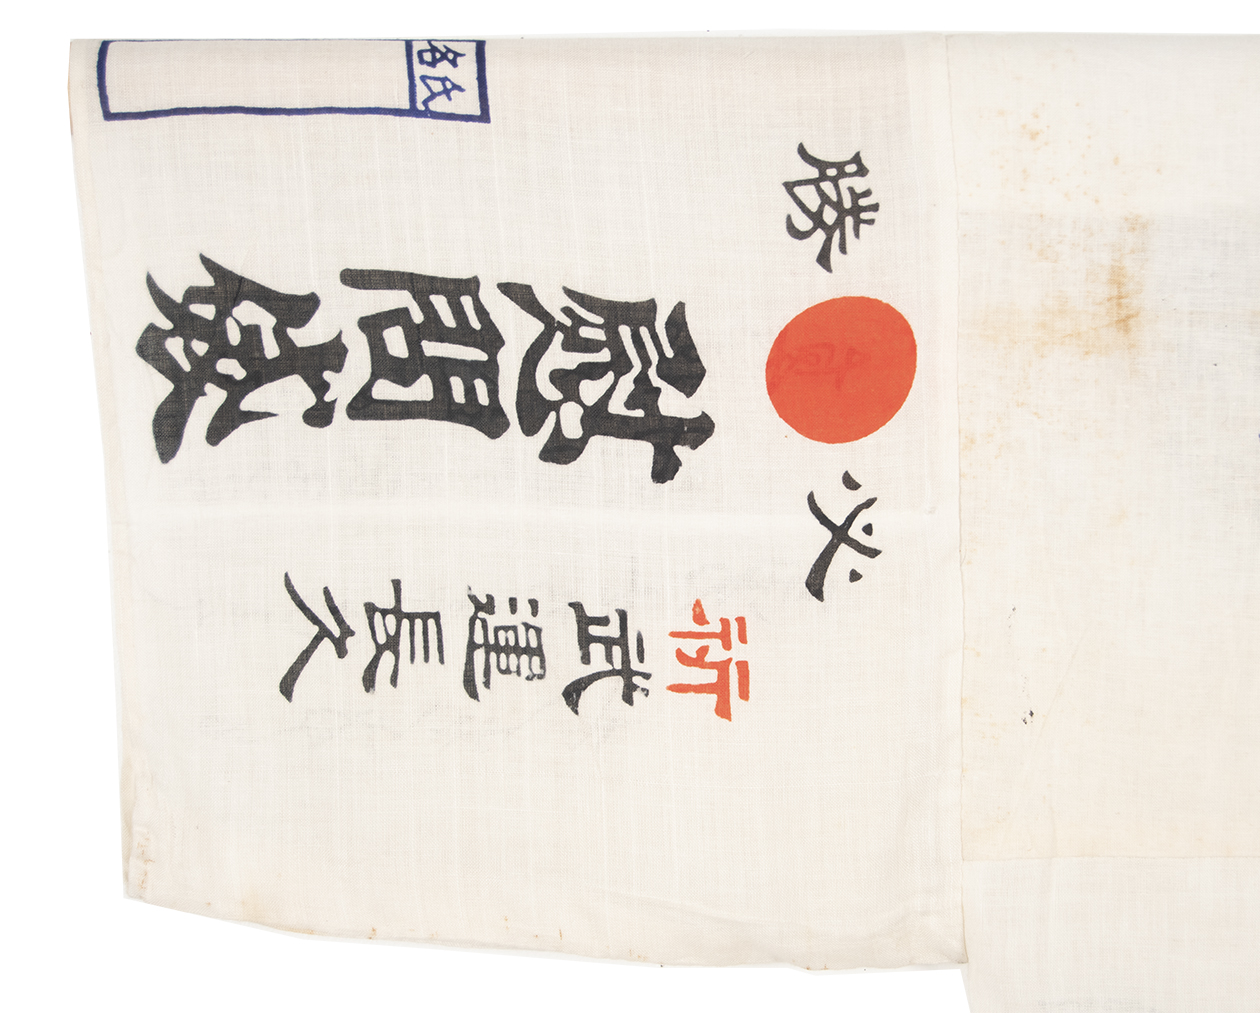 必勝
祈武運長久
慰問袋
氏名